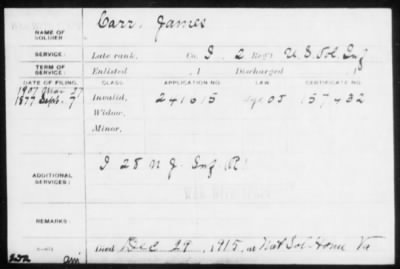 Carr, James
NAME OF SOLDIER:
SERVICE: Late rank, Co. I, 2 Reg't U.S. Vol. Inf
TERM OF SERVICE: Enlisted , 1 Discharged , 1
DATE OF FILING. CLASS. APPLICATION NO. LAW. CERTIFICATE NO.
1907 Mar 27
1877 Sept. 7 Invalid, 241615 157432
Widow,
Minor,
ADDITIONAL SERVICES: I 28 N J Inf
REMARKS:
Died Dec 29, 1915, at Nat Sol Home Va